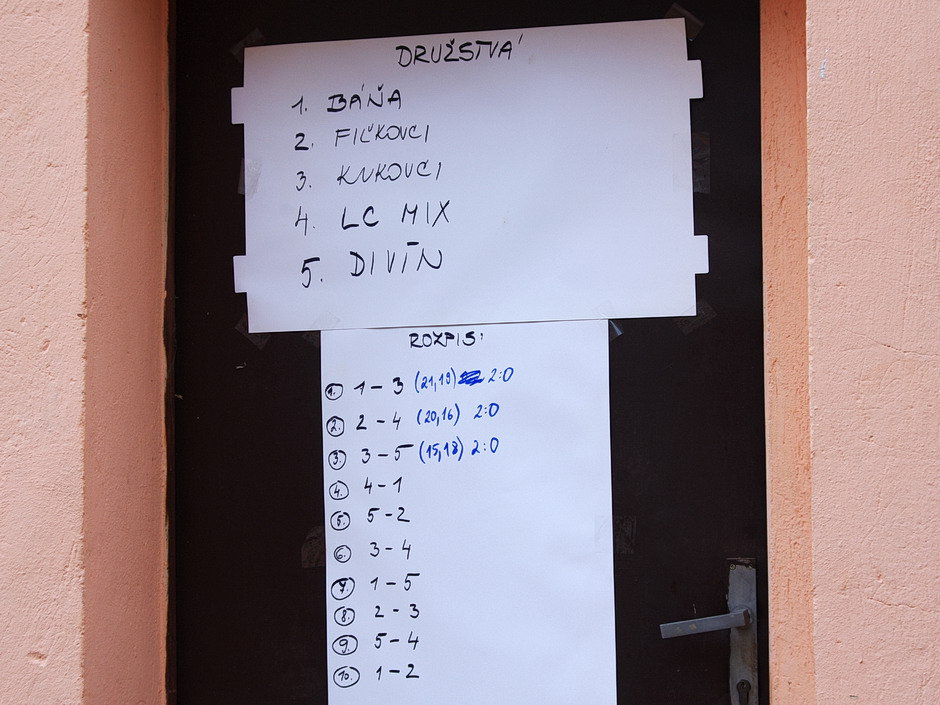 DRUŽSTVÁ
1. BÁŇA
2. FIČKOVCI
3. KUKOVCI
4. LC MIX
5. DIVÍN
ROZPIS:
1. 1-3 (21,19) 2:0
2. 2-4 (20,16) 2:0
3. 3-5 (15,18) 2:0
4. 4-1
5. 5-2
6. 3-4
7. 1-5
8. 2-3
9. 5-4
10. 1-2